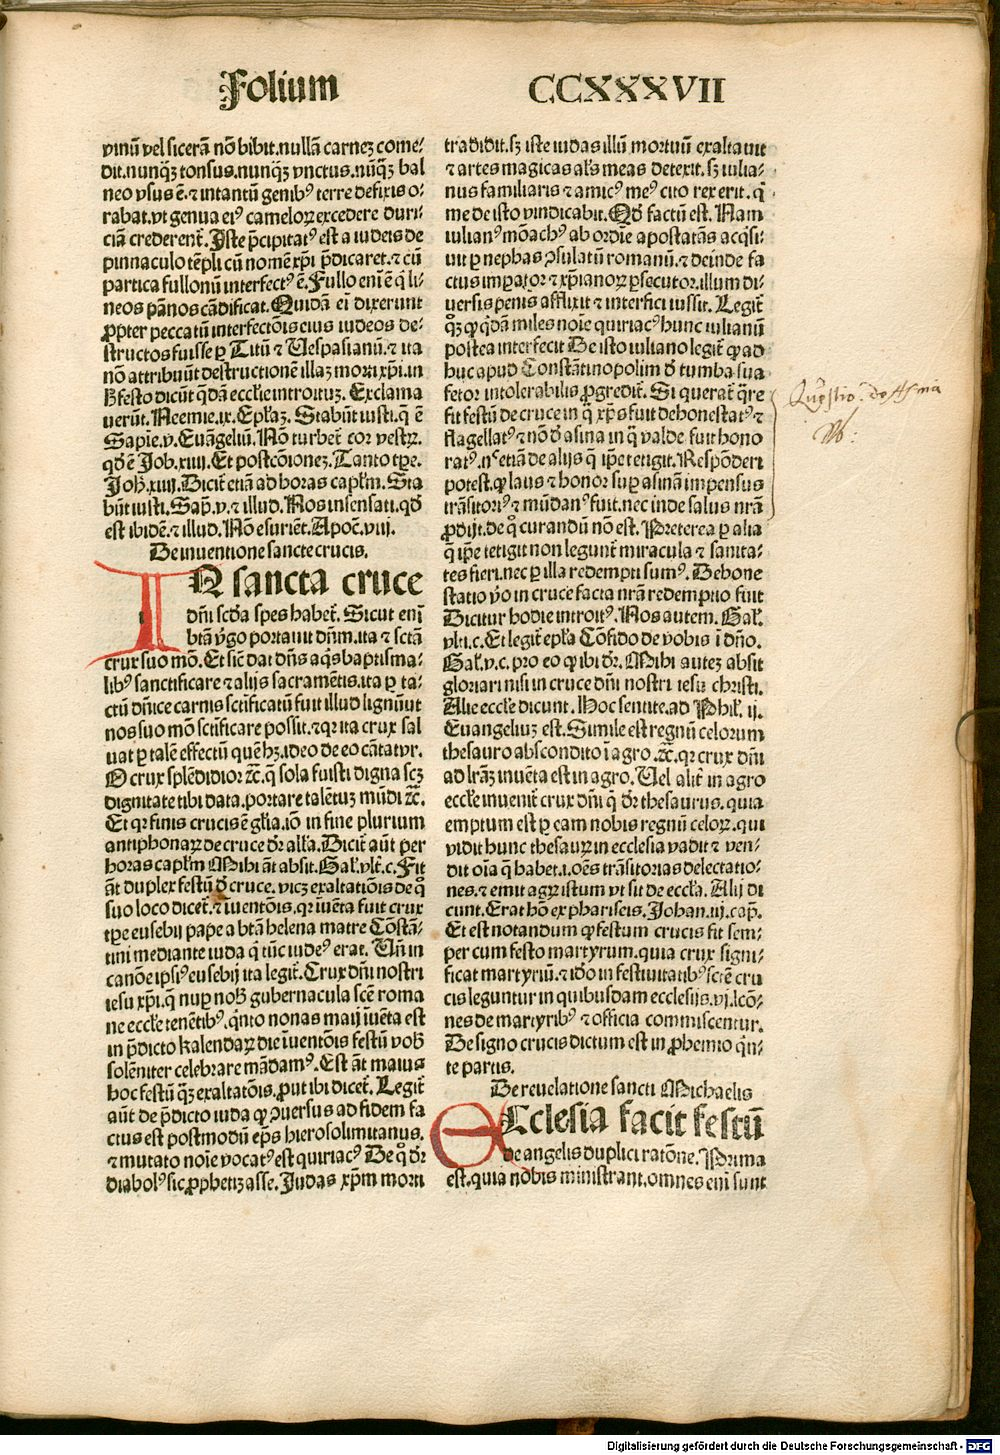 Folium CCXXXVII
vinū vel sicerā nō bibit. nullā carneꝫ come⸗
dit. nunqꝫ̄ tonsus. nunqꝫ̄ vnctus. nūqꝫ̄ bal
neo vsus ē. ⁊ intantū genibꝰ terre defixis o⸗
rabat. vt genua eiꝰ cameloꝝ excedere duri⸗
ciā crederent᷑. Iste p̄cipitatꝰ est a iudeis de
pinnaculo tēpli cū nomē xp̄i p̄dicaret. ⁊ cū
partica fullonū interfectꝰ ē. Fullo eni ē q̇ li⸗
neos pānos cādificat. Quidā ei dixerunt
ꝓpter peccatū interfectōis eius iudeos de⸗
structos fuisse ꝑ Titū ⁊ Vespasianū. ⁊ ita
nō attribuūt destructionē illaꝫ morti xp̄i. in
hͦ festo dicūt q̇dā eccl̄ie introituꝫ. Exclama
uerūt. Neemie .ix. Ep̄laꝫ. Stabūt iusti. q̄ ē
Sapīe. v. Euāgeliū. Nō turbet᷑ cor vestꝝ.
qd̄ ē Joh. xiiij. Et postcōioneꝫ. Tanto tp̄e.
Joh̄. xiiij. Dicit᷑ etiā ad horas capl̄m. Sta
būt iusti. Sap̄. v. ⁊ illud. Nos insensati. qd̄
est ibidē. ⁊ illud. Nō esuriēt. Apoc̄. viij.
De inuentione sancte crucis.
IN sancta cruce
dn̄i scd̄a spes habet᷑. Sicut enī
btā v̇go portauit dn̄m. ita ⁊ sctā
crux suo mō. Et sic̄ dat dn̄s aq̇s baptisma⸗
libꝰ sanctificare ⁊ alijs sacramētis. ita ꝑ ta⸗
ctū dn̄ice carnis sctificatū fuit illud lignū ut
nos suo mō sctificare possit. ⁊ qꝛ ita crux sal
uat ꝑ talē effectū quē hꝫ. ideo de eo cātatur.
O crux splēdidior ⁊c̄. q̄ sola fuisti digna scꝫ
dignitate tibi data. portare talētuꝫ mūdi ⁊c̄.
Et qꝛ finis crucis ē gl̄ia. iō in fine plurium
antiphonaꝝ de cruce dr̄ all̄a. Dicit᷑ aūt per
horas capl̄m Mihi aūt absit. Gal̄. vlt᷑. c. Fit
āt duplex festū d̄ cruce. vicꝫ exaltatiōis de q̊
suo loco dicet᷑. ⁊ iuentōis. qꝛ iuēta fuit crux
tp̄e eusebij pape a btā helena matre Cōstā⸗
tini mediante iuda q̇ tūc iudeꝰ erat. Vn̄ in
canōe ipsiꝰ eusebij ita legit᷑. Crux dn̄i nostri
iesu xp̄i. q̄ nuꝑ nob̄ gubernacula scē roma
ne eccl̄ie tenētibꝰ. q̇nto nonas maij iuēta est
in p̄dicto kalendaꝝ die iuentōis festū vob̄
solēniter celebrare mādamꝰ. Est āt maius
hoc festū qꝫ̄ exaltatōis. ꝓut ibi dicet᷑. Legit᷑
aūt de p̄dicto iuda ꝙ ꝯuersus ad fidem fa
ctus est postmodū ep̄s hierosolimitanus.
⁊ mutato noīe vocatꝰ est quiriacꝰ De q̊ dr̄
diabolꝰ sic ꝓphetiȥasse. Judas xp̄m morti
tradidit. sꝫ iste iudas illū mortuū exaltauit
⁊ artes magicas al̄s meas detexit. sꝫ iulia⸗
nus familiaris ⁊ amicꝰ meꝰ cito rex erit. q̇
me de isto vindicabit. Qd̄ factū est. Nam
iulianꝰ mōachꝰ ab ordīe apostatās acq̇si⸗
uit ꝑ nephas ꝯsulatū romanū. ⁊ deinde fa
ctus imꝑator ⁊ xp̄ianoꝝ ꝑsecutor. illum di⸗
uersis penis afflixit ⁊ interfici iussit. Legit᷑
qꝫ ꝙ q̇dā miles noīe quiriacꝰ hunc iulianū
postea interfecit De isto iuliano legit᷑ ꝙ ad
huc apud Constātinopolim d̄ tumba sua
fetor intolerabilis ꝓgredit᷑. Si querat᷑ q̄re
fit festū de cruce in q̄ xp̄s fuit dehonestatꝰ ⁊
flagellatꝰ ⁊ nō d̄ asina in q̄ valde fuit hono
ratꝰ. nͨ etiā de alijs q̄ ip̄e tetigit. Respōderi
potest. ꝙ laus ⁊ honor suꝑ asinā impensus
trāsitoriꝰ ⁊ mūdanꝰ fuit. nec inde salus nr̄a
ꝓdijt. de q̊ curandū nō est. Preterea ꝑ alia
q̄ ip̄e tetigit non legunt᷑ miracula ⁊ sanita⸗
tes fieri. nec ꝑ illa redempti sumꝰ. Dehone
statio v̇o in cruce facta nrā redemptio fuit
Dicitur hodie introitꝰ. Nos autem. Gal̄.
vlti. c. Et legit᷑ ep̄la Cōfido de vobis ī dn̄o.
Gal̄. v. c. pro eo ꝙ ibi dr̄. Mihi auteꝫ absit
gloriari nisi in cruce dn̄i nostri iesu christi.
Alie eccl̄ie dicunt. Hoc sentite. ad Phil̄. ij.
Euangeliuꝫ est. Simile est regnū celorum
thesauro abscondito ī agro. ⁊c̄. qꝛ crux dn̄i
ad l̄raꝫ inuēta est in agro. Uel alit᷑ in agro
eccl̄ie inuenit᷑ crux dn̄i q̄ dr̄ thesaurus. quia
emptum est ꝑ eam nobis regnū celoꝝ. qui
vidit hunc thesauꝝ in ecclesia vadit ⁊ ven⸗
dit oīa q̄ habet. i. oēs trāsitorias delectatio⸗
nes. ⁊ emit agꝝ istum vt sit de eccl̄ia. Alij di
cunt. Erat hō ex phariseis. Johan. iij. cap̄.
Et est notandum ꝙ festum crucis fit sem⸗
per cum festo martyrum. quia crux signi⸗
ficat martyriū. ⁊ id̄o in festiuitatibꝰ scē cru
cis leguntur in quibusdam ecclesijs. vj. lcō⸗
nes de martyribꝰ ⁊ officia commiscentur.
De signo crucis dictum est in ꝓhemio q̇n⸗
te partis.
De reuelatione sancti Michaelis
Ecclesia facit festū
de angelis duplici ratōne. Prima
est. quia nobis ministrant. omnes enī sunt
Quæstio: de Asina
Nb:
Digitalisierung gefördert durch die Deutsche Forschungsgemeinschaft - DFG